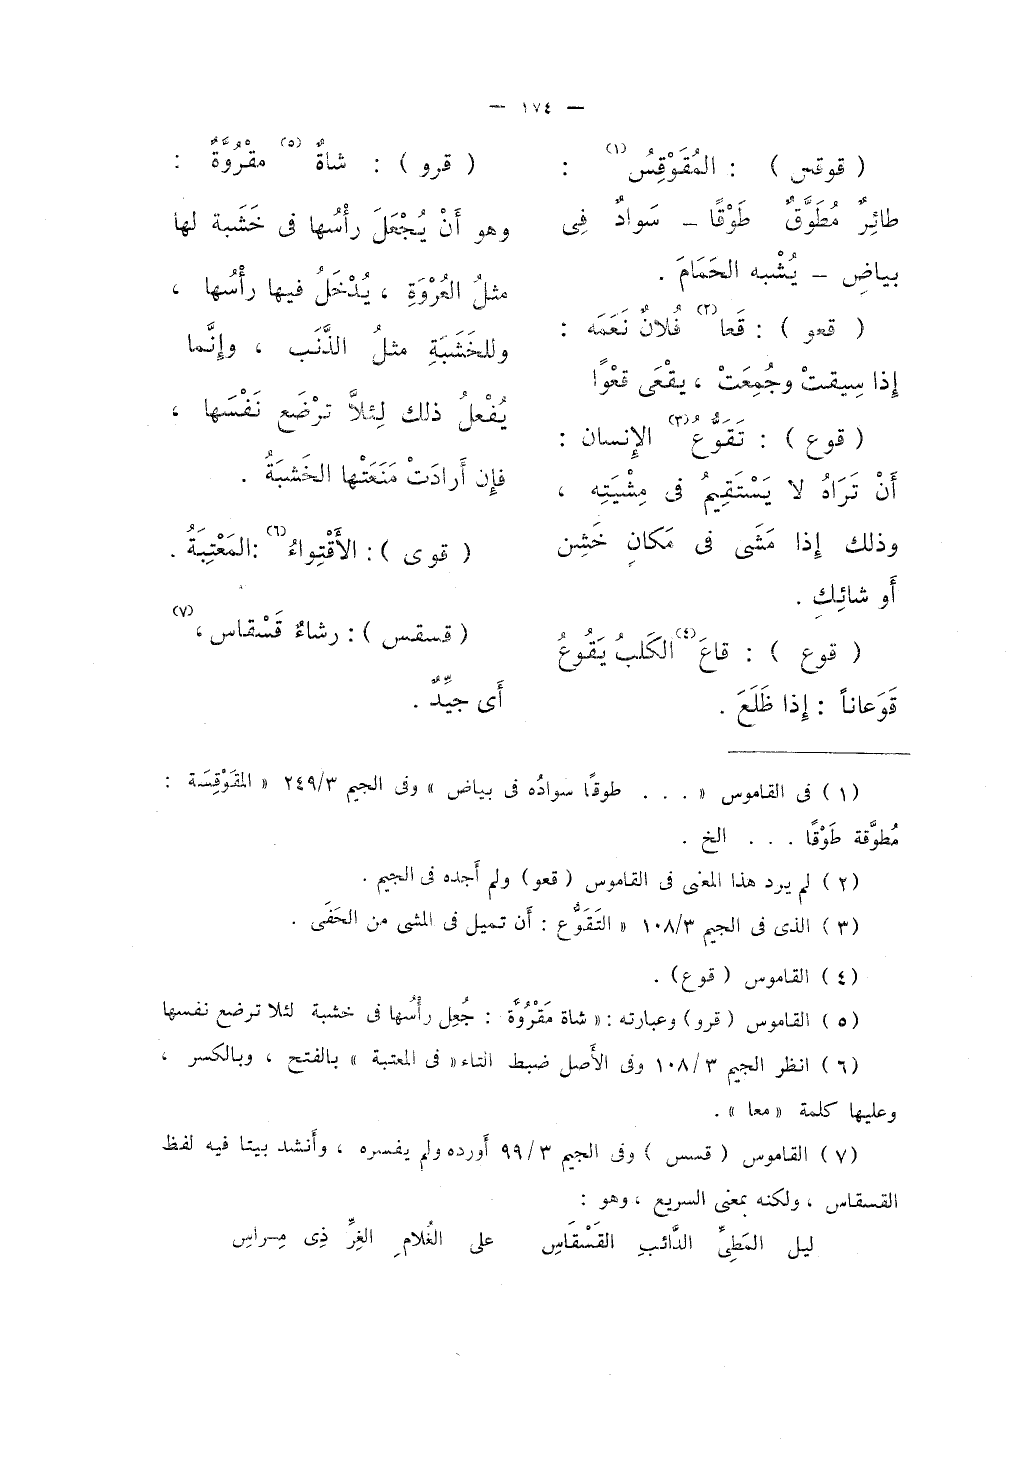 — ١٧٤ —
( قوقس ) : المُقَوْقِسُ (١) :
طائِرٌ مُطَوَّقٌ طَوْقًا – سَوادٌ فِى
بياضِ – يُشْبه الحَمَامَ .
( قعو ) : قَعا (٢) فُلانٌ نَعَمَه :
إذا سِيقتْ وجُمِعَتْ ، يقْعَى قعْوًا
( قوع ) : تَقَوُّعُ (٣) الإنسان :
أَنْ تَرَاهُ لا يَسْتَقِيمُ فى مِشْيَتِه ،
وذلك إذا مَشَى فى مَكانٍ خَشِن
أَو شائِكِ .
( قوع ) : قاعَ (٤) الكَلبُ يَقُوعُ
قَوَعاناً : إذا ظَلَعَ .
( قرو ) : شاةٌ (٥) مقْرُوَّةٌ :
وهو أَنْ يُجْعَلَ رأْسُها فى خَشَبة لها
مثلُ العُرْوَةِ ، يُدْخَلُ فيها رأْسُها ،
وللخَشَبَةِ مثلُ الذَّنَب ، وإنَّما
يُفْعلُ ذلك لِئلاَّ ترْضَع نَفْسَها ،
فإن أَرادَتْ مَنَعَتْها الخَشبَةُ .
( قوى ) : الأَقْتِواءُ (٦) : المَعْتِبَةُ .
( قسقس ) : رشاءٌ قَسْقاس ، (٧)
أَى جيِّدٌ .
(١) فى القاموس « . . . طوقًا سوادُه فى بياض » وفى الجيم ٢٤٩/٣ « المقَوْقِسَة :
مُطوَّقة طَوْقًا . . . الخ .
(٢) لم يرد هذا المعنى فى القاموس ( قعو) ولم أَجده فى الجيم .
(٣) الذى فى الجيم ١٠٨/٣ « التَقَوُّع : أَن تميل فى المشى من الحَفَى .
(٤) القاموس ( قوع) .
(٥) القاموس ( قرو) وعبارته : « شاة مَقْرُوَّة : جُعِل رأْسُها فى خشبة لئلا ترضع نفسها
(٦) انظر الجيم ١٠٨/٣ وفى الأَصل ضبط التاء « فى المعتبة » بالفتح ، وبالكسر ،
وعليها كلمة « معا » .
(٧) القاموس ( قسس ) وفى الجيم ٩٩/٣ أَورده ولم يفسره ، وأَنشد بيتا فيه لفظ
القسقاس ، ولكنه بمعنى السريع ، وهو :
ليل المَطِىِّ الدَّائبِ القَسْقَاسِ على الغُلامِ الغِرِّ ذِى مِـراسِ